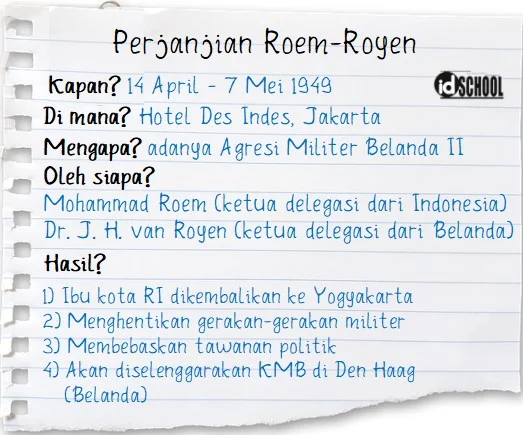 Perjanjian Roem-Royen
Kapan? 14 April - 7 Mei 1949
idSCHOOL
Di mana? Hotel Des Indes, Jakarta
Mengapa? adanya Agresi Militer Belanda II
Oleh siapa?
Mohammad Roem (ketua delegasi dari Indonesia)
Dr. J. H. van Royen (ketua delegasi dari Belanda)
Hasil?
1) Ibu kota RI dikembalikan ke Yogyakarta
2) Menghentikan gerakan-gerakan militer
3) Membebaskan tawanan politik
4) Akan diselenggarakan KMB di Den Haag
(Belanda)